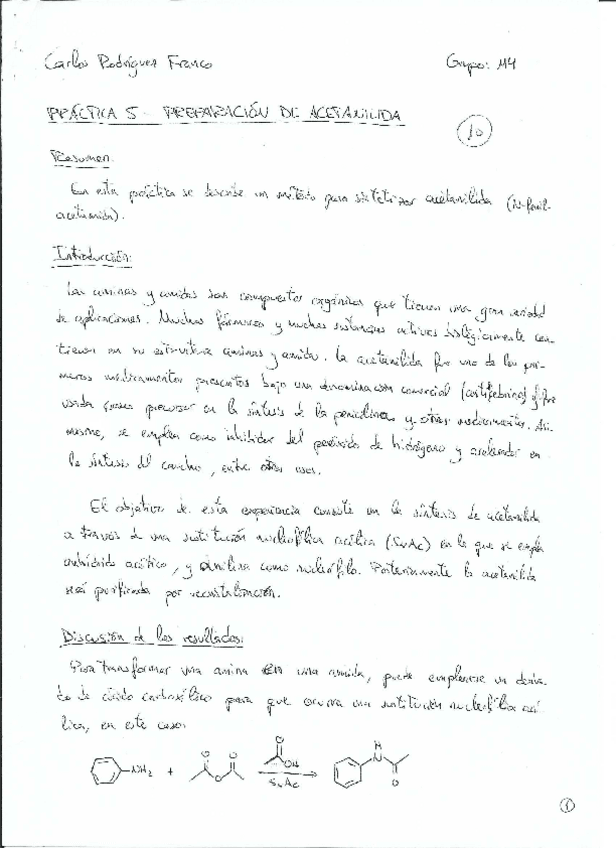 Carlos Rodríguez Franco Grupo: M4
PRÁCTICA 5 - PREPARACIÓN DE ACETANILIDA
10
Resumen:
En esta práctica se describe un método para sintetizar acetanilida (N-fenil-
acetamida).
Introducción:
Las aminas y amidas son compuestos orgánicos que tienen una gran variedad
de aplicaciones. Muchos fármacos y muchas sustancias activas biológicamente con-
tienen en su estructura aminas y amidas. La acetanilida fue uno de los pri-
meros medicamentos prescritos bajo una denominación comercial (antifebrina) y fue
usada como precursor en la síntesis de la penicilina y otros medicamentos. Asi-
mismo, se emplea como inhibidor del peróxido de hidrógeno y acelerador en
la síntesis del caucho, entre otros usos.
El objetivo de esta experiencia consiste en la síntesis de acetanilida
a través de una sustitución nucleofílica acílica (SNAc) en la que se emplea
anhídrido acético, y anilina como nucleófilo. Posteriormente la acetanilida
será purificada por recristalización.
Discusión de los resultados:
Para transformar una amina en una amida, puede emplearse un deriva-
do de ácido carboxílico para que ocurra una sustitución nucleofílica ací-
lica, en este caso:
NH2 + O O O O OH SNAc H N O
1